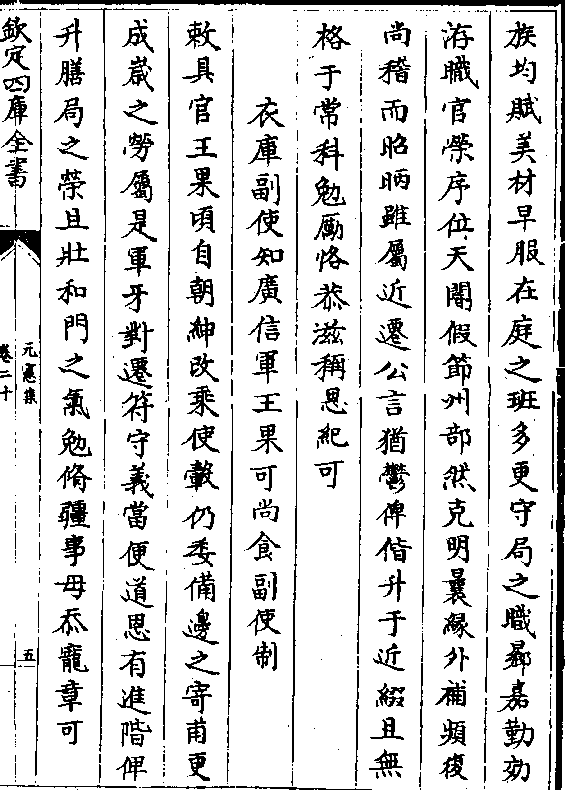 族均賦美材早服在庭之班多更守局之職鄒嘉勤効
洊職官榮序位天閽假節州部然克明曩緣外補頻復
尚稽而昭晒雖屬近遷公言猶鬱俾偕升于近綴且無
格于常科勉勵恪恭滋稱恩紀可
衣庫副使知廣信軍王果可尚食副使制
敕具官王果頃自朝紳改乘使轂仍委備邊之寄甫更
成嵗之勞屬是軍牙對遷符守義當便道恩有進階俾
升膳局之榮且壯和門之氣勉脩疆事毋忝寵章可
欽定四庫全書
元憲集
卷二十
五